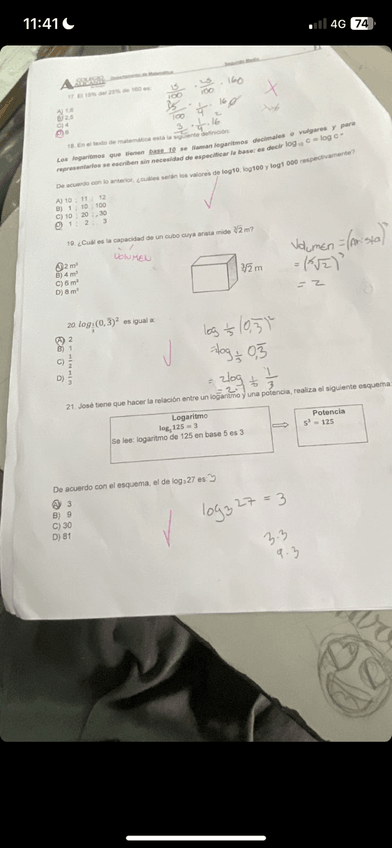 11:41
4G 74
Departamento de Matemática
Segundo Medio
17. El 15% del 25% de 160 es:
15/100 · 25/100 · 160
A) 1,6
B) 2,3
C) 4
D) 6
15/100 · 1/4 · 160
3/2 · 1/4 · 16
18. En el texto de matemática está la siguiente definición:
Los logaritmos que tienen base 10 se llaman logaritmos decimales o vulgares y para
representarlos se escriben sin necesidad de especificar la base; es decir log₁₀ c = log c.
De acuerdo con lo anterior, ¿cuáles serán los valores de log10, log100 y log1 000 respectivamente?
A) 10 ; 11 ; 12
B) 1 ; 10 ; 100
C) 10 ; 20 ; 30
D) 1 ; 2 ; 3
19. ¿Cuál es la capacidad de un cubo cuya arista mide ∛2 m?
VOLUMEN
A) 2 m³
B) 4 m³
C) 6 m³
D) 8 m³
∛2 m
Volumen = (arista)³
= (∛2)³
= 2
20. log⅓(0,3̅)² es igual a:
A) 2
B) 1
C) 1/2
D) 1/3
log 1/3 (0,3̅)²
= 2log 1/3 0,3̅
= 2log 1/3 1/3
21. José tiene que hacer la relación entre un logaritmo y una potencia, realiza el siguiente esquema:
Logaritmo
log₅125 = 3
Se lee: logaritmo de 125 en base 5 es 3
Potencia
5³ = 125
De acuerdo con el esquema, el de log₃27 es: 3
A) 3
B) 9
C) 30
D) 81
log₃ 27 = 3
3·3
9·3